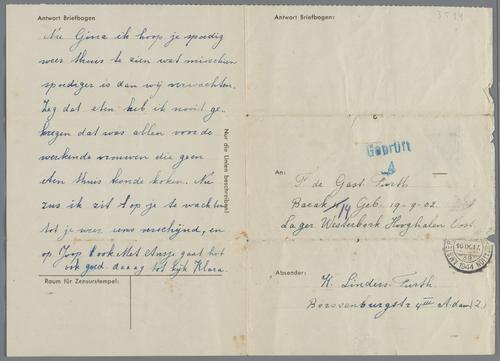 Antwort Briefbogen
Nu Gina ik hoop je spoedig
weer thuis te zien wat misschien
spoediger is dan wij verwachten.
Zeg dat eten heb ik nooit ge-
kregen dat was allen voor de
werkende vrouwen die geen
eten thuis konde koken. Nu
zus ik zit op je te wachten
tot je weer eens verschijnd, en
op Joop ook. Met Ansje gaat het
ook goed daaag tot kijk Klara.
Raum für Zensurstempel:
Nur die Linien beschreiben!
Antwort Briefbogen:
Geprüft
4
An:
F. de Gast-Furth
Barak 19 Geb. 19-9-02.
Lager Westerbork Hooghalen Oost
Absender:
K. Linders-Furth
Berssenburgstr 4III A.dam Z.
1944